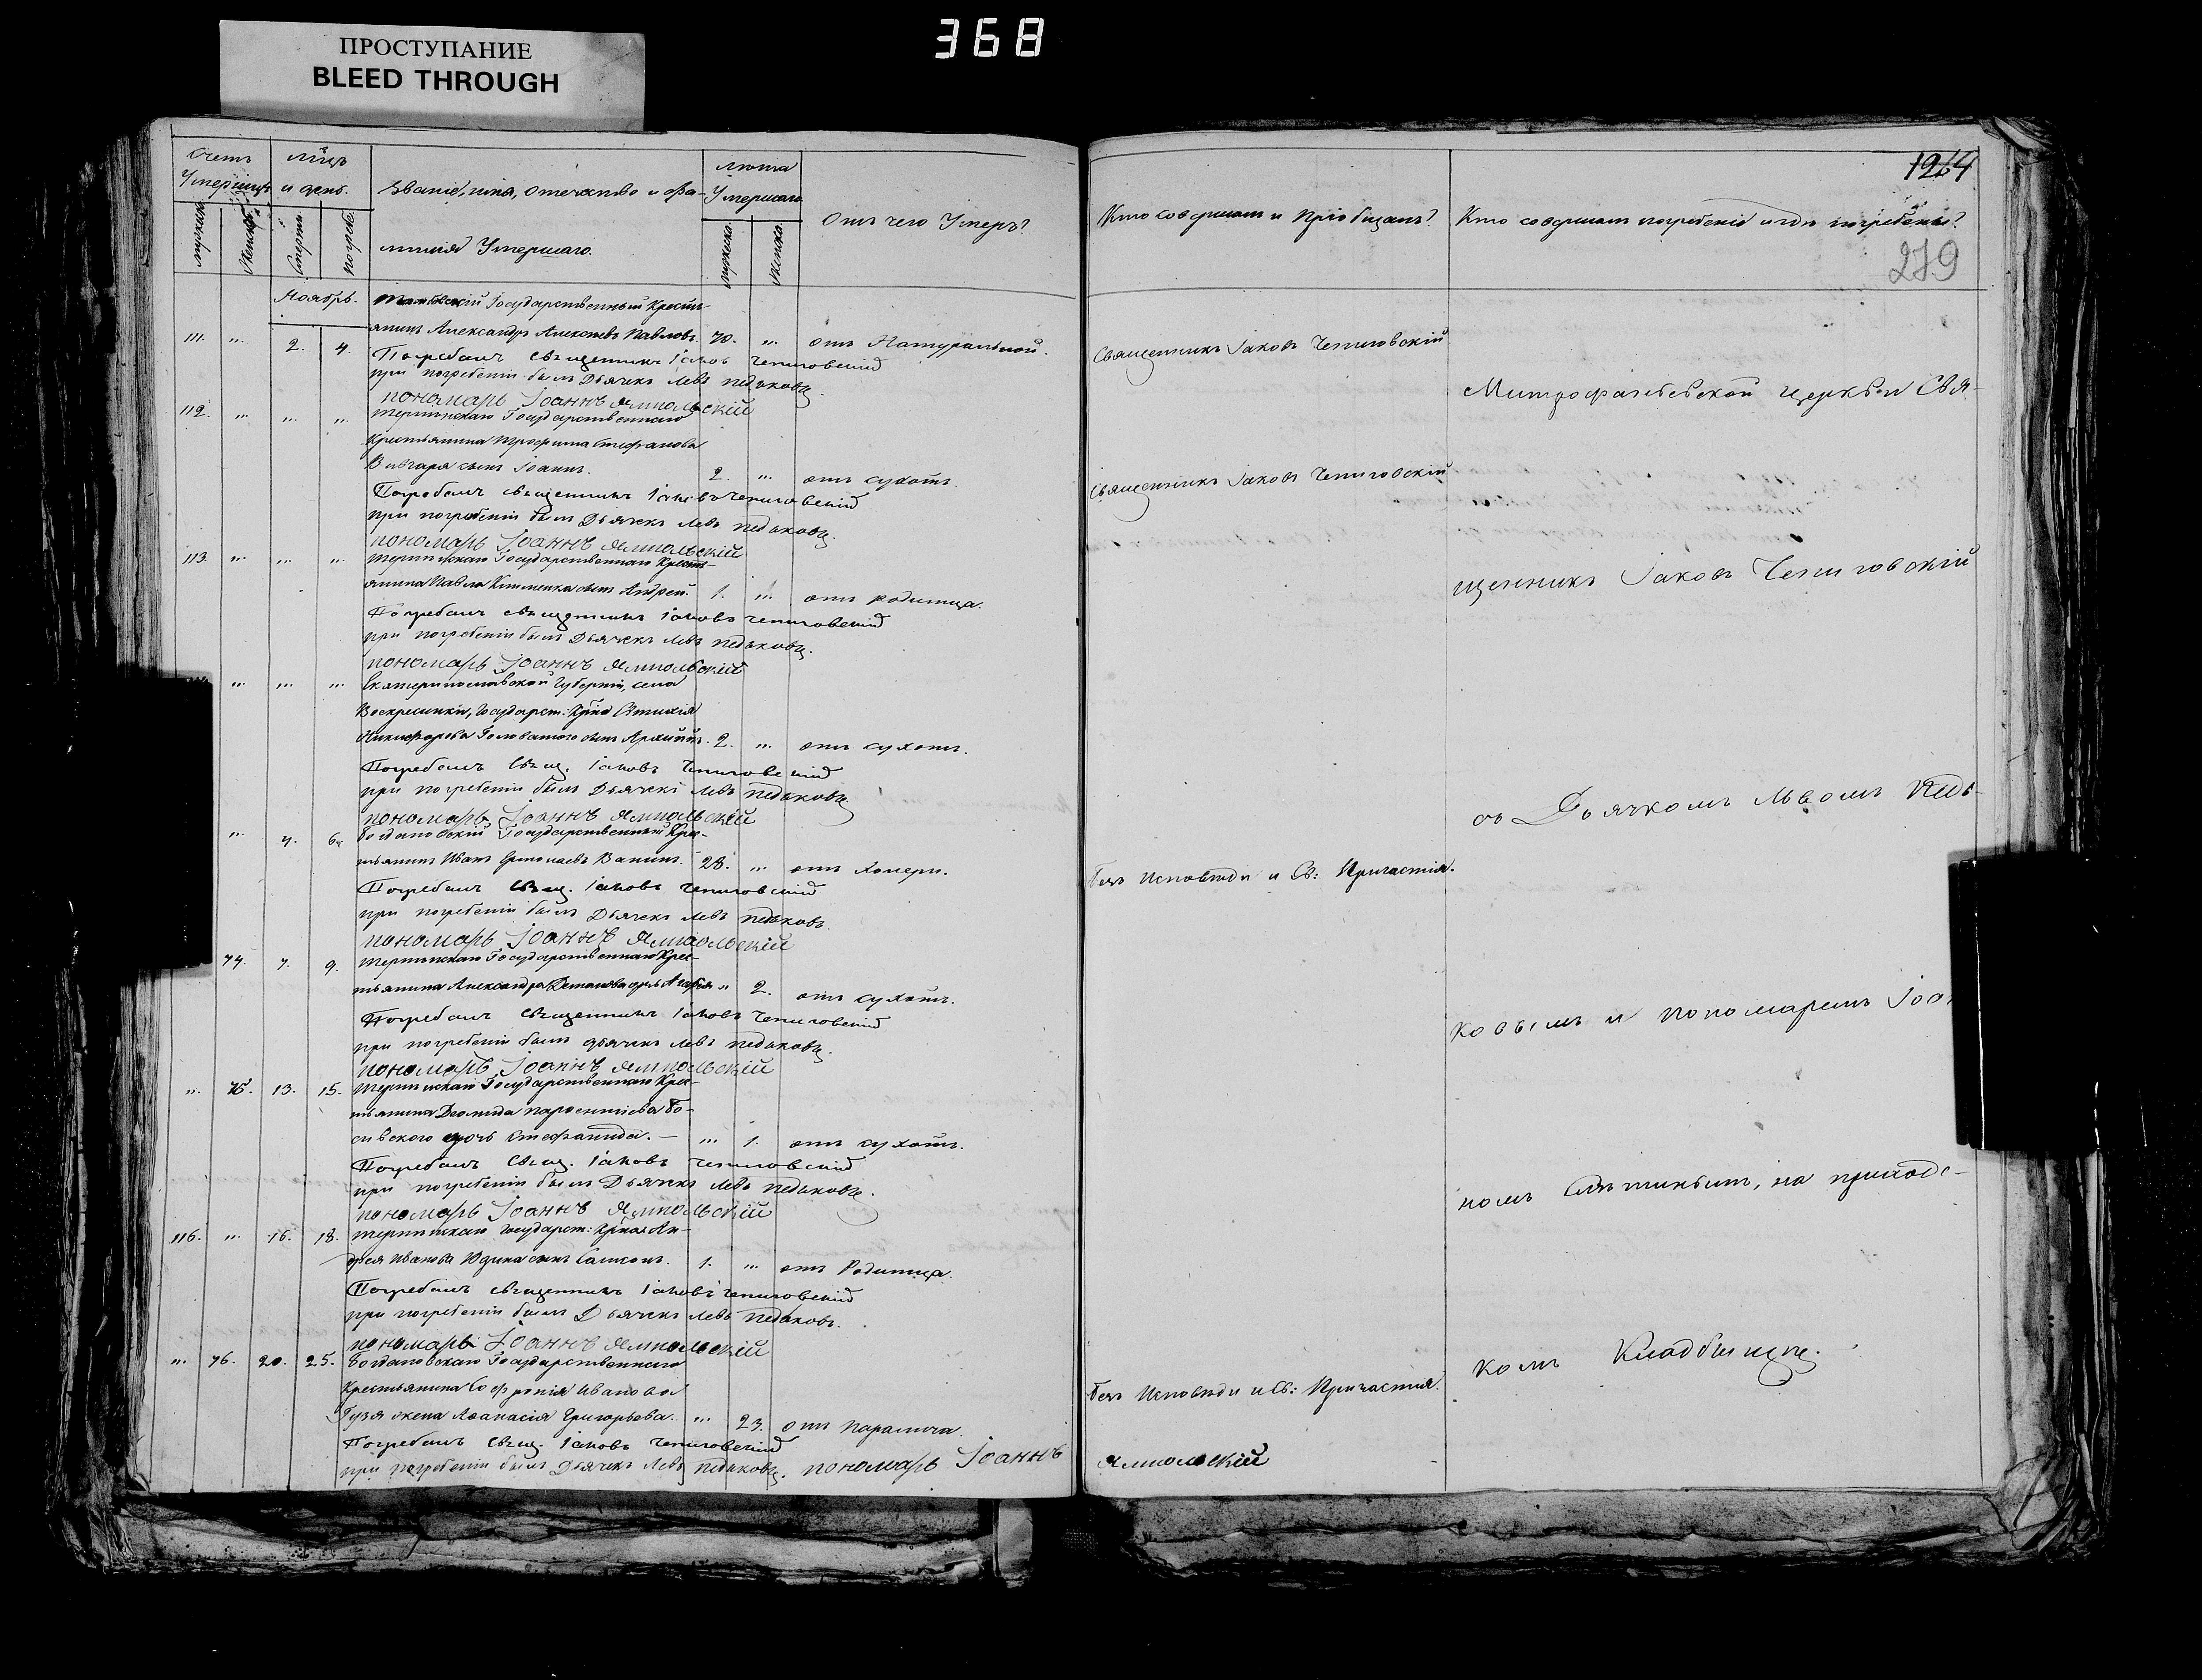 368
ПРОСТУПАНИЕ
BLEED THROUGH
Счетъ Умершихъ
мѣцъ и день.
Званіе, имя, отечество и фа-
милія Умершаго.
лѣта Умершаго
Отъ чего Умеръ?
мужеска.
женска.
смерти.
погреб.
мужеска.
женска.
Ноябрь.
Государственный Кресть-
111. " 2. 4. янинъ Александръ Алексѣевъ Павловъ. 70. " отъ Натуральной.
Погребалъ священникъ Іаковъ Чепиговскій
при погребеніи былъ Дьячекъ Левъ Педьковъ.
пономарь Іоаннъ Ямпольскій
112. " " " Терпѣнскаго Государственнаго
Крестьянина Трофима Стефанова
сынъ Іоаннъ. 2. " отъ сухотъ.
Погребалъ священникъ Іаковъ Чепиговскій
при погребеніи былъ Дьячекъ Левъ Педьковъ.
пономарь Іоаннъ Ямпольскій
113. " " " Терпѣнскаго Государственнаго Кресть-
янина Павла Клименка сынъ Андрей. 1. " отъ родимца.
Погребалъ священникъ Іаковъ Чепиговскій
при погребеніи былъ Дьячекъ Левъ Педьковъ.
пономарь Іоаннъ Ямпольскій
" " " Екатеринославской Губерніи, села
Воскресенки, Государст: Крѣна
Никифорова Головатого сынъ Архиппъ. 2. " отъ сухотъ.
Погребалъ Свящ. Іаковъ Чепиговскій
при погребеніи былъ Дьячекъ Левъ Педьковъ.
пономарь Іоаннъ Ямпольскій
" 4. 6. Богдановскій Государственный Крес-
тьянинъ Иванъ Ермолаевъ Ванинъ. 28. " отъ холеры.
Погребалъ Свящ. Іаковъ Чепиговскій
при погребеніи былъ Дьячекъ Левъ Педьковъ.
пономарь Іоаннъ Ямпольскій
74. 7. 9. Терпѣнскаго Государственнаго Крес-
тьянина Александра дочь " 2. отъ сухотъ.
Погребалъ священникъ Іаковъ Чепиговскій
при погребеніи былъ дьячекъ Левъ Педьковъ.
пономарь Іоаннъ Ямпольскій
" 75. 13. 15. Терпѣнскаго Государственнаго Крес-
тьянина Діомида Парфентіева
дочь Стефанида. — " 1. отъ сухотъ.
Погребалъ Свящ. Іаковъ Чепиговскій
при погребеніи былъ Дьячекъ Левъ Педьковъ.
пономарь Іоаннъ Ямпольскій
116. " 16. 18. Терпѣнскаго Государст: Крѣнна Ан-
дрея Иванова Юдина сынъ Сампсонъ. 1. " отъ Родимца.
Погребалъ священникъ Іаковъ Чепиговскій
при погребеніи былъ Дьячекъ Левъ Педьковъ.
пономарь Іоаннъ Ямпольскій
" 76. 20. 25. Богдановскаго Государственнаго
Крестьянина Софронія Иванова
Гузя жена Афанасія Григорьева. " 23. отъ паралича.
Погребалъ Свящ. Іаковъ Чепиговскій
при погребеніи былъ Дьячекъ Левъ Педьковъ. пономарь Іоаннъ
Ямпольскій
1264
279
Кто совершалъ погребеніе и гдѣ погребены?
Священникъ Іаковъ Чепиговскій
Священникъ Іаковъ Чепиговскій
безъ Исповѣди и Св: Причастія.
безъ Исповѣди и Св: Причастія.
Митрофаніевской Церкви Свя-
щенникъ Іаковъ Чепиговскій
съ Дьячкомъ Львомъ Педь-
ковымъ и пономаремъ
номъ на приходс-
комъ Кладбищѣ.